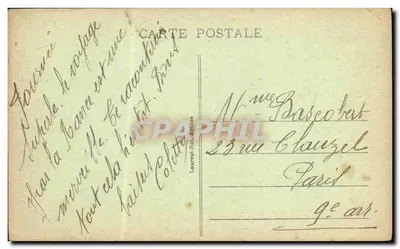 CARTE POSTALE
Tournée
superbe. le voyage
par la Rance est une
merveille. Te raconterai
tout cela bientôt. Bons
baisers
Colette
Mme Bascobert
23 rue Clauzel
Paris
9e arr.